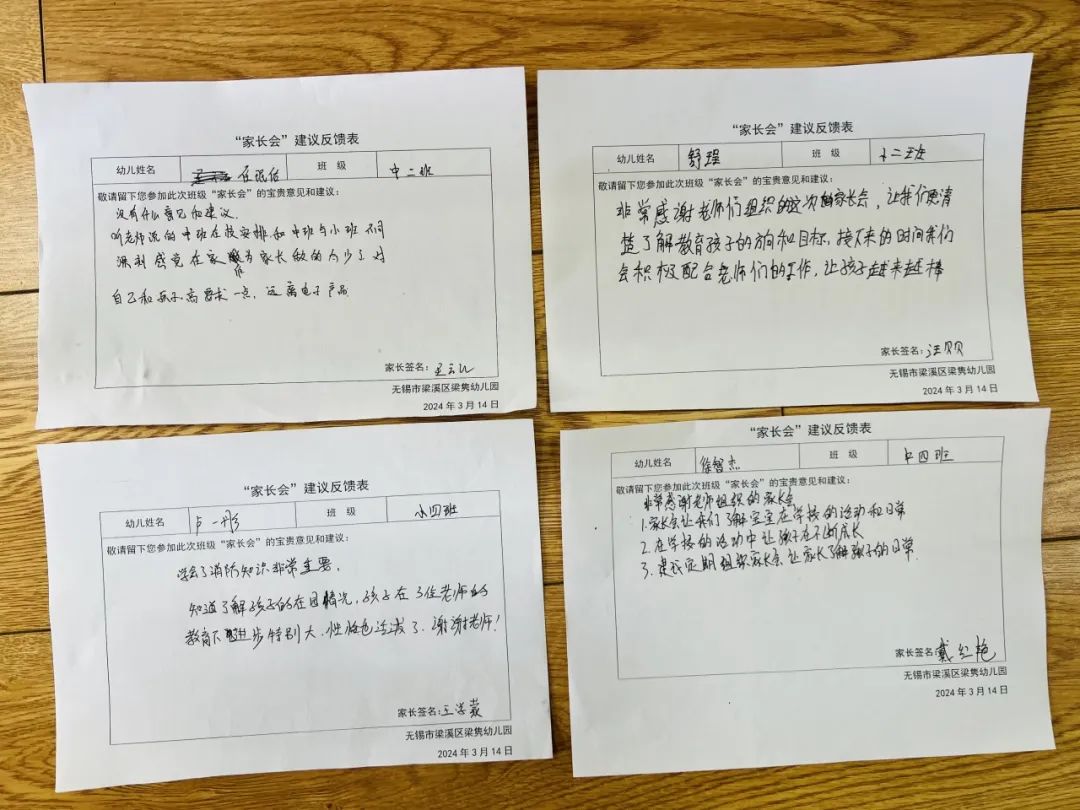 “家长会”建议反馈表
幼儿姓名 班 级 中二班
敬请留下您参加此次班级“家长会”的宝贵意见和建议：
没有什么意见和建议
听老师说的中班在校安排和中班与小班不同
深刻感觉在家 作为家长做的太少了 对
自己和孩子高要求一点，远离电子产品
家长签名：
无锡市梁溪区梁隽幼儿园
2024 年 3 月 14 日
“家长会”建议反馈表
幼儿姓名 舒瑆 班 级 小二班
敬请留下您参加此次班级“家长会”的宝贵意见和建议：
非常感谢老师们组织的这次的家长会，让我们更清
楚了解教育孩子的方向和目标，接下来的时间我们
会积极配合老师们的工作，让孩子越来越棒
家长签名：汪贝贝
无锡市梁溪区梁隽幼儿园
2024 年 3 月 14 日
“家长会”建议反馈表
幼儿姓名 卢一彤 班 级 小四班
敬请留下您参加此次班级“家长会”的宝贵意见和建议：
学会了消防知识非常重要。
知道了解孩子的在园情况，孩子在了位老师的
教育下进步特别大，性格也活泼了，谢谢老师！
家长签名：
无锡市梁溪区梁隽幼儿园
2024 年 3 月 14 日
“家长会”建议反馈表
幼儿姓名 徐智杰 班 级 中四班
敬请留下您参加此次班级“家长会”的宝贵意见和建议：
非常感谢老师组织的家长会
1. 家长会让我们了解宝宝在学校的活动和日常
2. 在学校的活动中让孩子在不断成长
3. 建议定期组织家长会让家长了解孩子的日常．
家长签名：戴红艳
无锡市梁溪区梁隽幼儿园
2024 年 3 月 14 日